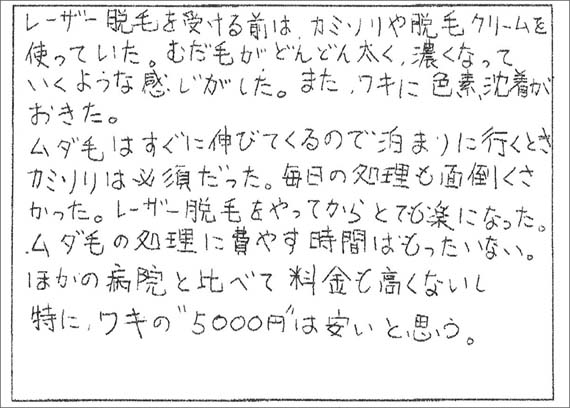 レーザー脱毛を受ける前は、カミソリや脱毛クリームを
使っていた。むだ毛がどんどん太く、濃くなって
いくような感じがした。また、ワキに色素沈着が
おきた。
ムダ毛はすぐに伸びてくるので泊まりに行くとき
カミソリは必須だった。毎日の処理も面倒くさ
かった。レーザー脱毛をやってからとても楽になった。
ムダ毛の処理に費やす時間はもったいない。
ほかの病院と比べて料金も高くないし
特に、ワキの"5000円"は安いと思う。